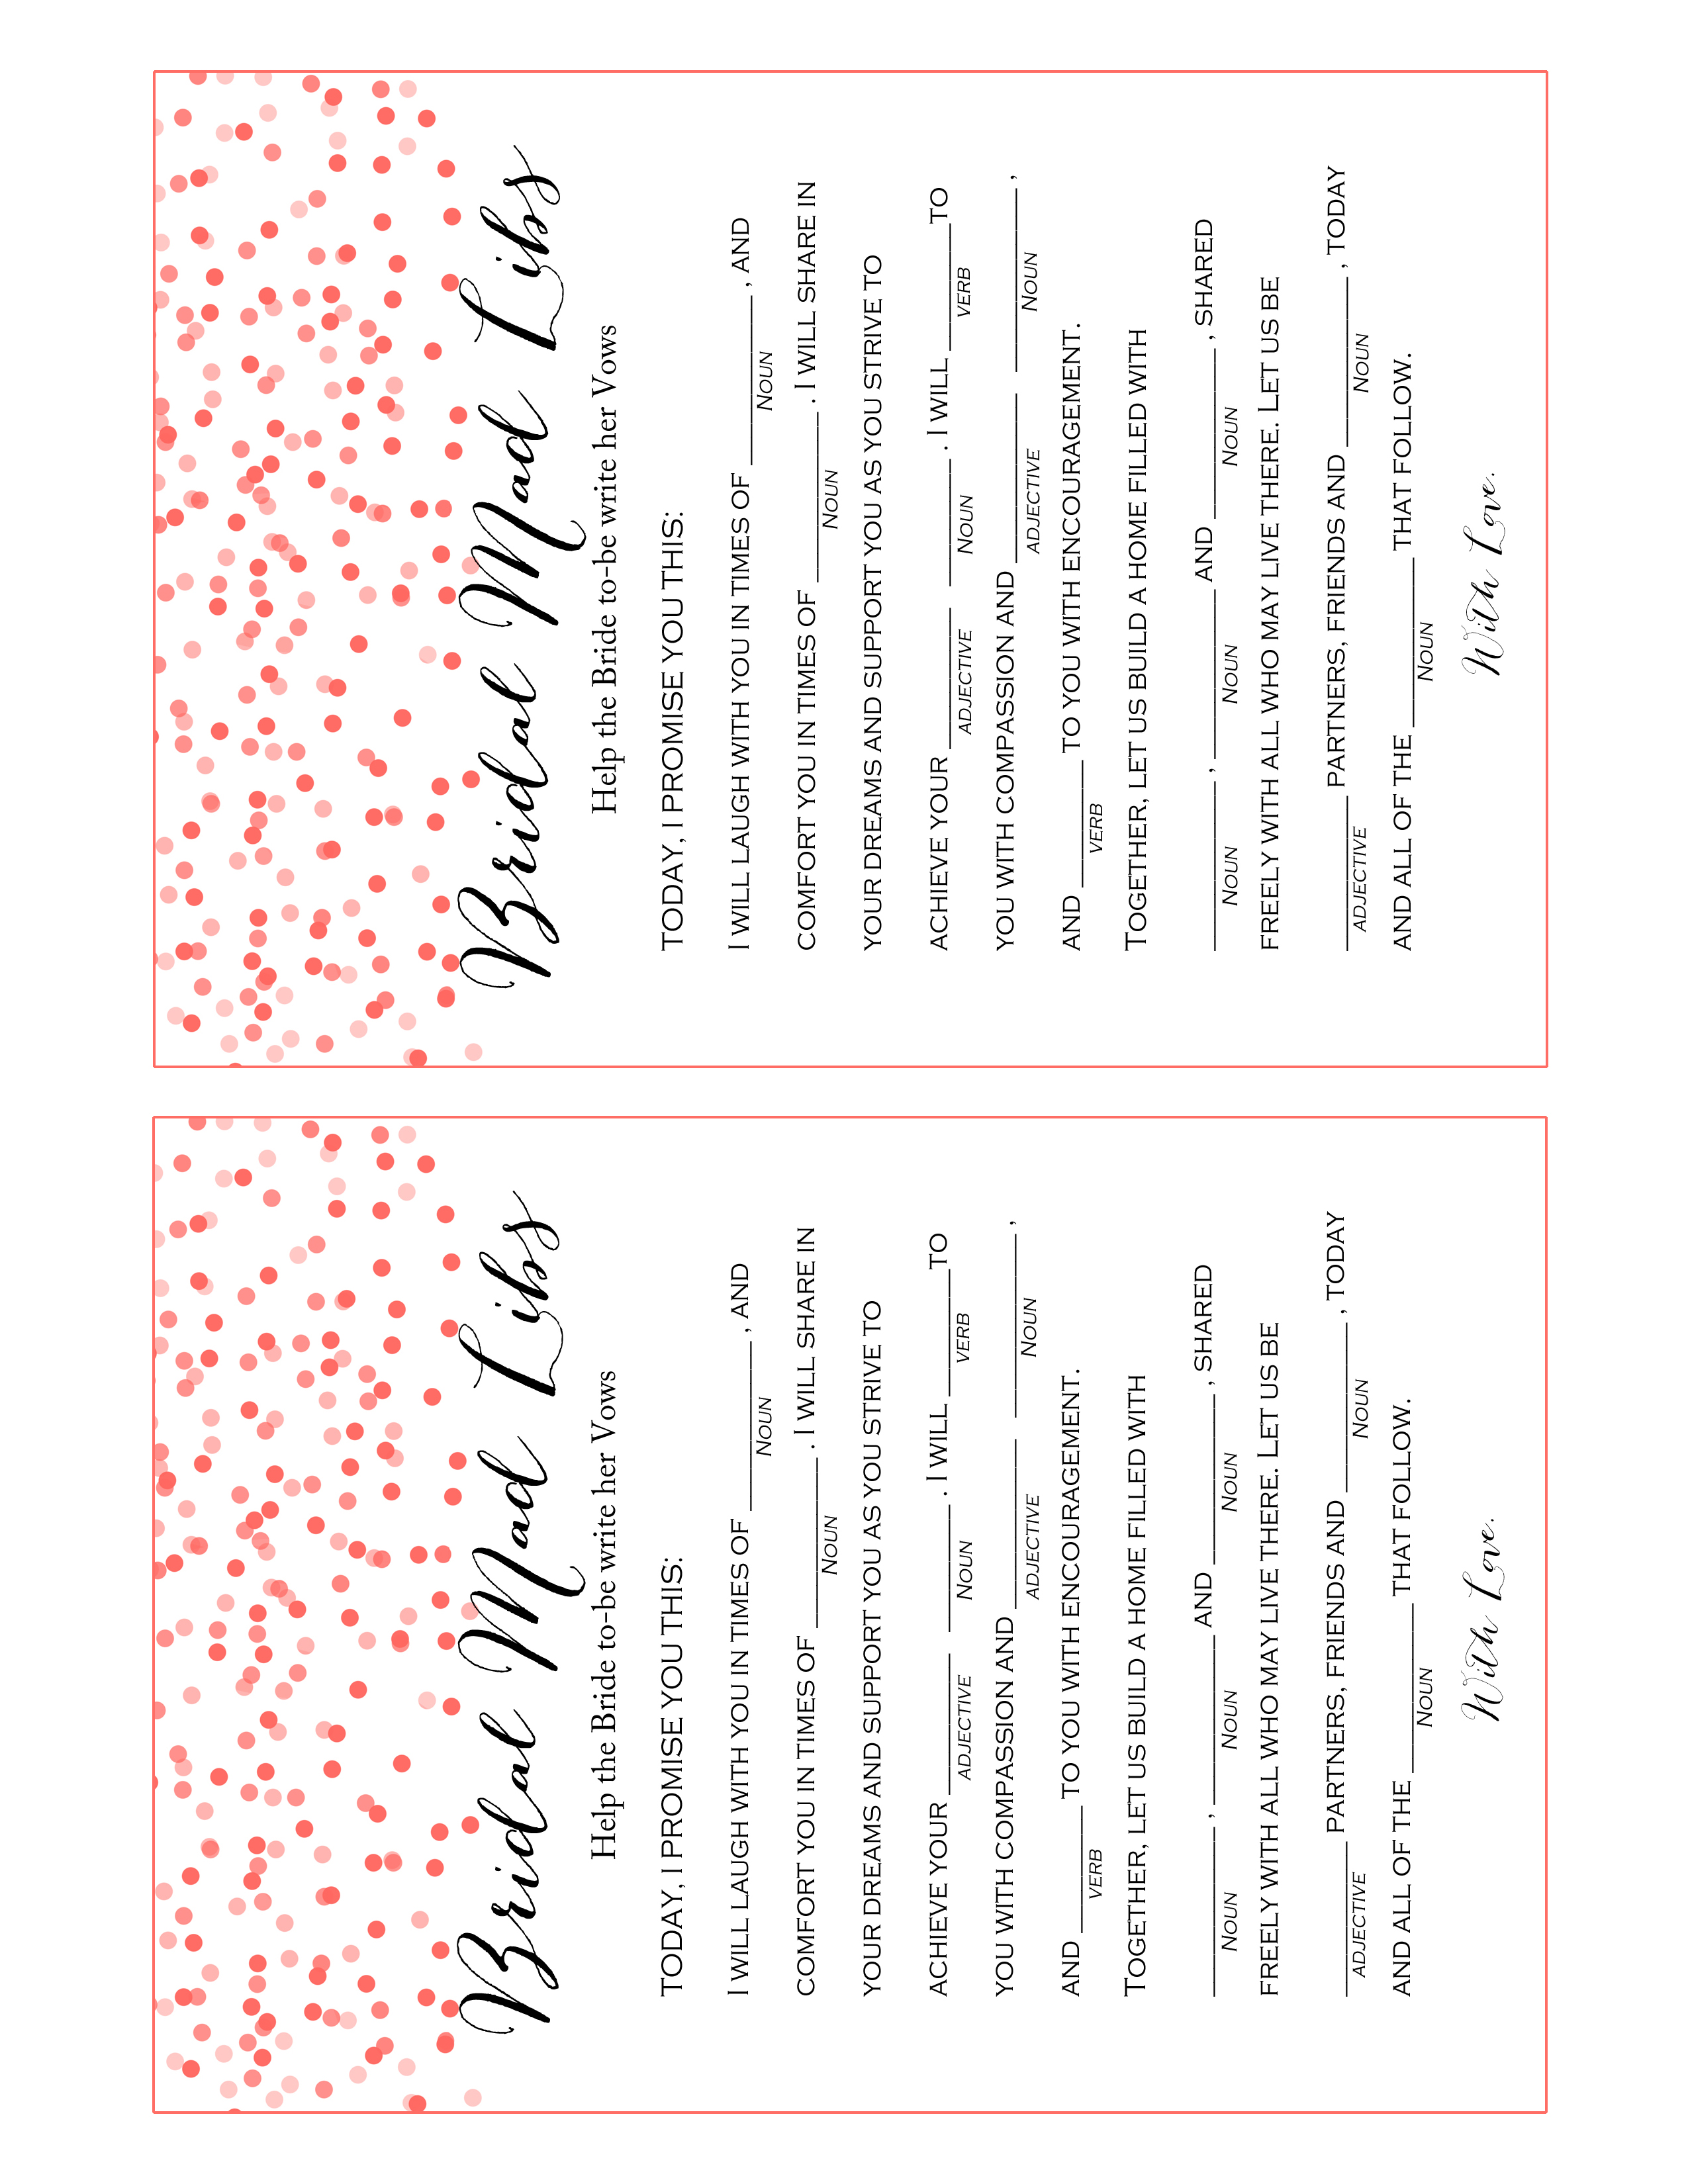 Bridal Mad Libs
Help the Bride to-be write her Vows
TODAY, I PROMISE YOU THIS:
I WILL LAUGH WITH YOU IN TIMES OF ____________, AND
NOUN
COMFORT YOU IN TIMES OF ____________. I WILL SHARE IN
NOUN
YOUR DREAMS AND SUPPORT YOU AS YOU STRIVE TO
ACHIEVE YOUR __________ _________. I WILL _________TO
ADJECTIVE NOUN VERB
YOU WITH COMPASSION AND ____________ _____________,
ADJECTIVE NOUN
AND _________ TO YOU WITH ENCOURAGEMENT.
VERB
TOGETHER, LET US BUILD A HOME FILLED WITH
____________, ____________ AND ____________, SHARED
NOUN NOUN NOUN
FREELY WITH ALL WHO MAY LIVE THERE. LET US BE
___________ PARTNERS, FRIENDS AND ____________, TODAY
ADJECTIVE NOUN
AND ALL OF THE ____________ THAT FOLLOW.
NOUN
With Love.
Bridal Mad Libs
Help the Bride to-be write her Vows
TODAY, I PROMISE YOU THIS:
I WILL LAUGH WITH YOU IN TIMES OF ____________, AND
NOUN
COMFORT YOU IN TIMES OF ____________. I WILL SHARE IN
NOUN
YOUR DREAMS AND SUPPORT YOU AS YOU STRIVE TO
ACHIEVE YOUR __________ _________. I WILL _________TO
ADJECTIVE NOUN VERB
YOU WITH COMPASSION AND ____________ _____________,
ADJECTIVE NOUN
AND _________ TO YOU WITH ENCOURAGEMENT.
VERB
TOGETHER, LET US BUILD A HOME FILLED WITH
____________, ____________ AND ____________, SHARED
NOUN NOUN NOUN
FREELY WITH ALL WHO MAY LIVE THERE. LET US BE
___________ PARTNERS, FRIENDS AND ____________, TODAY
ADJECTIVE NOUN
AND ALL OF THE ____________ THAT FOLLOW.
NOUN
With Love.